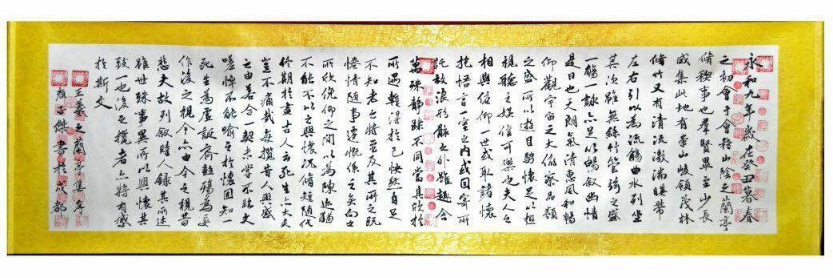 永和九年歲在癸丑暮春
之初會于會稽山陰之蘭亭
脩稧事也群賢畢至少長
咸集此地有崇山峻領茂林
脩竹又有清流激湍暎帶
左右引以為流觴曲水列坐
其次雖無絲竹管弦之盛
一觴一詠亦足以暢敘幽情
是日也天朗氣清惠風和暢
仰觀宇宙之大俯察品類
之盛所以遊目騁懷足以極
視聽之娛信可樂也夫人之
相與俯仰一世或取諸懷
抱悟言一室之內或因寄所
託放浪形骸之外雖趣舍
萬殊靜躁不同當其欣於
所遇暫得於己快然自足
不知老之將至及其所之既
惓情隨事遷感慨係之矣向之
所欣俛仰之間以為陳迹猶
不能不以之興懷況脩短隨化
終期於盡古人云死生亦大矣
豈不痛哉每攬昔人興感
之由若合一契未嘗不臨文
嗟悼不能喻之於懷固知一
死生為虛誕齊彭殤為妄
作後之視今亦由今之視昔
悲夫故列敘時人錄其所述
雖世殊事異所以興懷其
致一也後之攬者亦將有感
於斯文
王羲之蘭亭集序
傑書於成都